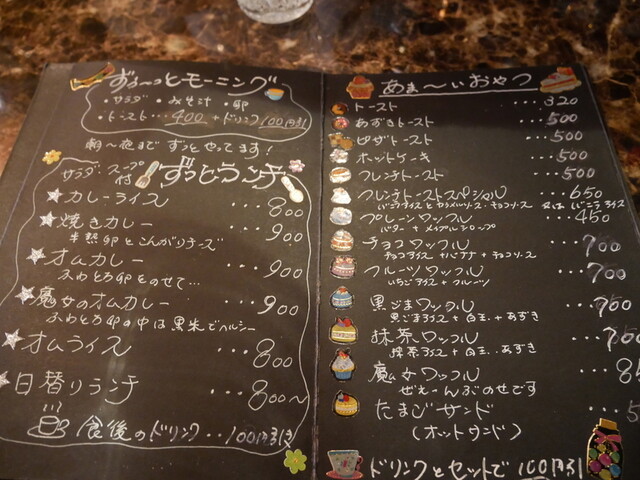 ずぅ〜っとモーニング
・サラダ ・みそ汁 ・卵
・トースト…400 +ドリンク100円引
朝〜夜まで ずっとやってます!
サラダ スープ付 ずっとランチ
★カレーライス …800
★焼きカレー …900
半熟卵とこんがりチーズ
★オムカレー …900
ふわとろ卵をのせて…
★魔女のオムカレー …900
ふわとろ卵の中は黒米でヘルシー
★オムライス …800
★日替りランチ …800〜
食後のドリンク‥100円引き
あま〜いおやつ
トースト …320
あずきトースト …500
ピザトースト …500
ホットケーキ …500
フレンチトースト …500
フレンチトーストスペシャル …650
バニラアイスとカラメルソース・チョコソース 又は いちごアイス
プレーンワッフル …450
バター + メイプルシロップ
チョコワッフル …700
チョコアイス+バナナ+チョコソース
フルーツワッフル …700
いちごアイス+フルーツ
黒ごまワッフル …700
黒ごまアイス+白玉+あずき
抹茶ワッフル …700
抹茶アイス+白玉‥あずき
魔女ワッフル …
ぜぇーんぶのせです
たまごサンド …
(ホットサンド)
ドリンクとセットで100円引